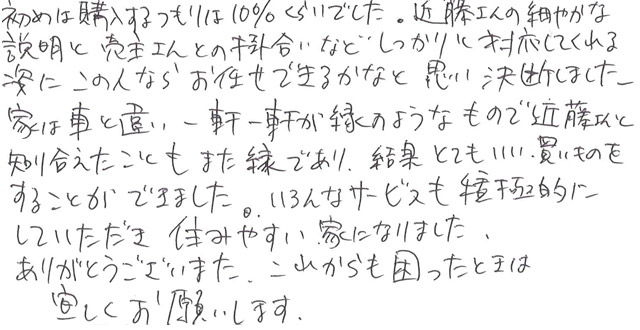 初めは購入するつもりは10%くらいでした。近藤さんの細やかな
説明と売主さんとの掛合いなどしっかりと対応してくれる
姿にこの人ならお任せできるかなと思い決断しました
家は車と違い一軒一軒が縁のようなもので近藤さんと
知り合えたこともまた縁であり、結果とてもいい買いものを
することができました。いろんなサービスも積極的に
していただき住みやすい家になりました、
ありがとうございました、これからも困ったときは
宜しくお願いします、